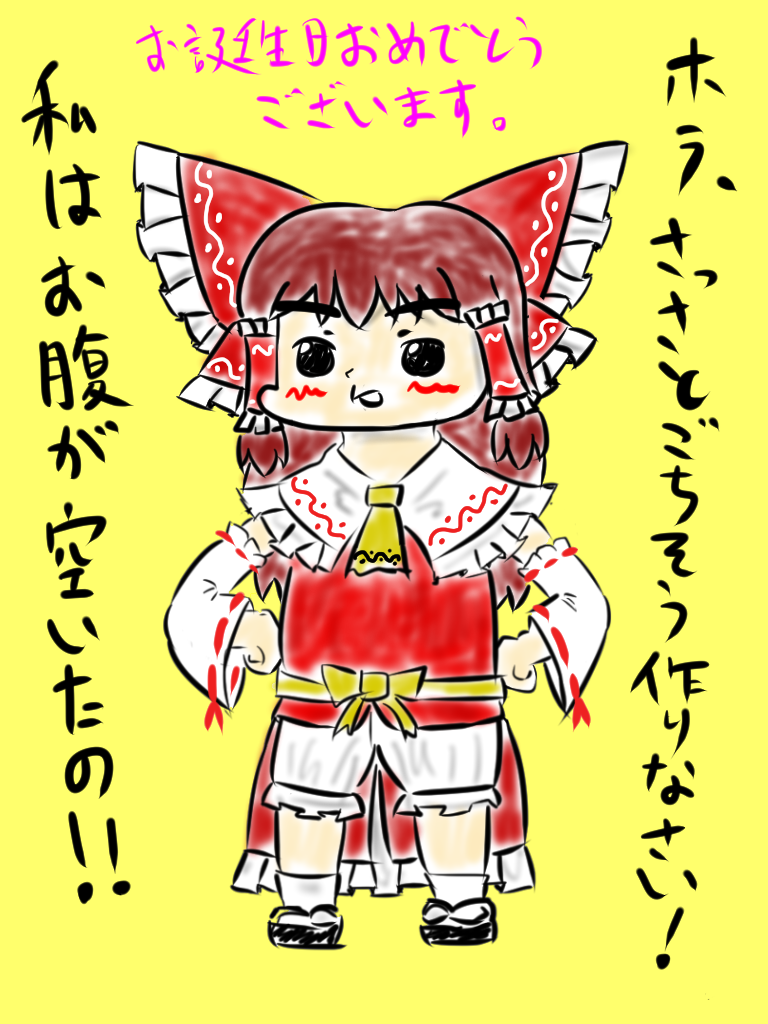 お誕生日おめでとう
ございます。
ホラ、さっさとごちそう作りなさい!
私はお腹が空いたの!!